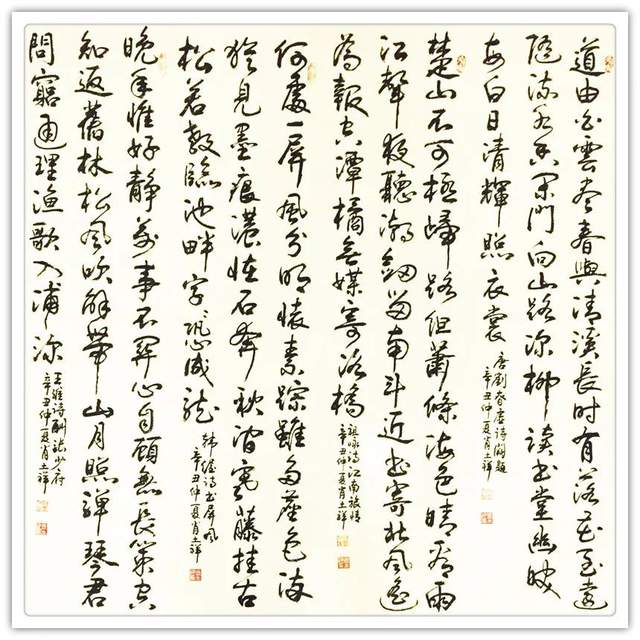 道由白雲尽春與清溪長時有落花至遠
隨流水香閑門向山路深柳讀書堂幽映
每白日清輝照衣裳
唐劉眘虛詩闕題
辛丑仲夏肖土祥
楚山不可極歸路但蕭條海色晴看雨
江聲夜聽潮劍留南斗近書寄北風遙
為報空潭橘無媒寄洛橋
祖咏詩江南旅情
辛丑仲夏肖土祥
何處一屏風分明懷素蹤雖多塵色染
猶見墨痕濃怪石奔秋澗寒藤挂古
松若教臨池畔字〻恐成龍
韩偓詩書屏風
辛丑仲夏肖土祥
晚年惟好靜萬事不關心自顧無長策空
知返舊林松風吹解帶山月照彈琴君
問窮通理漁歌入浦深
王維詩酬張少府
辛丑仲夏肖土祥